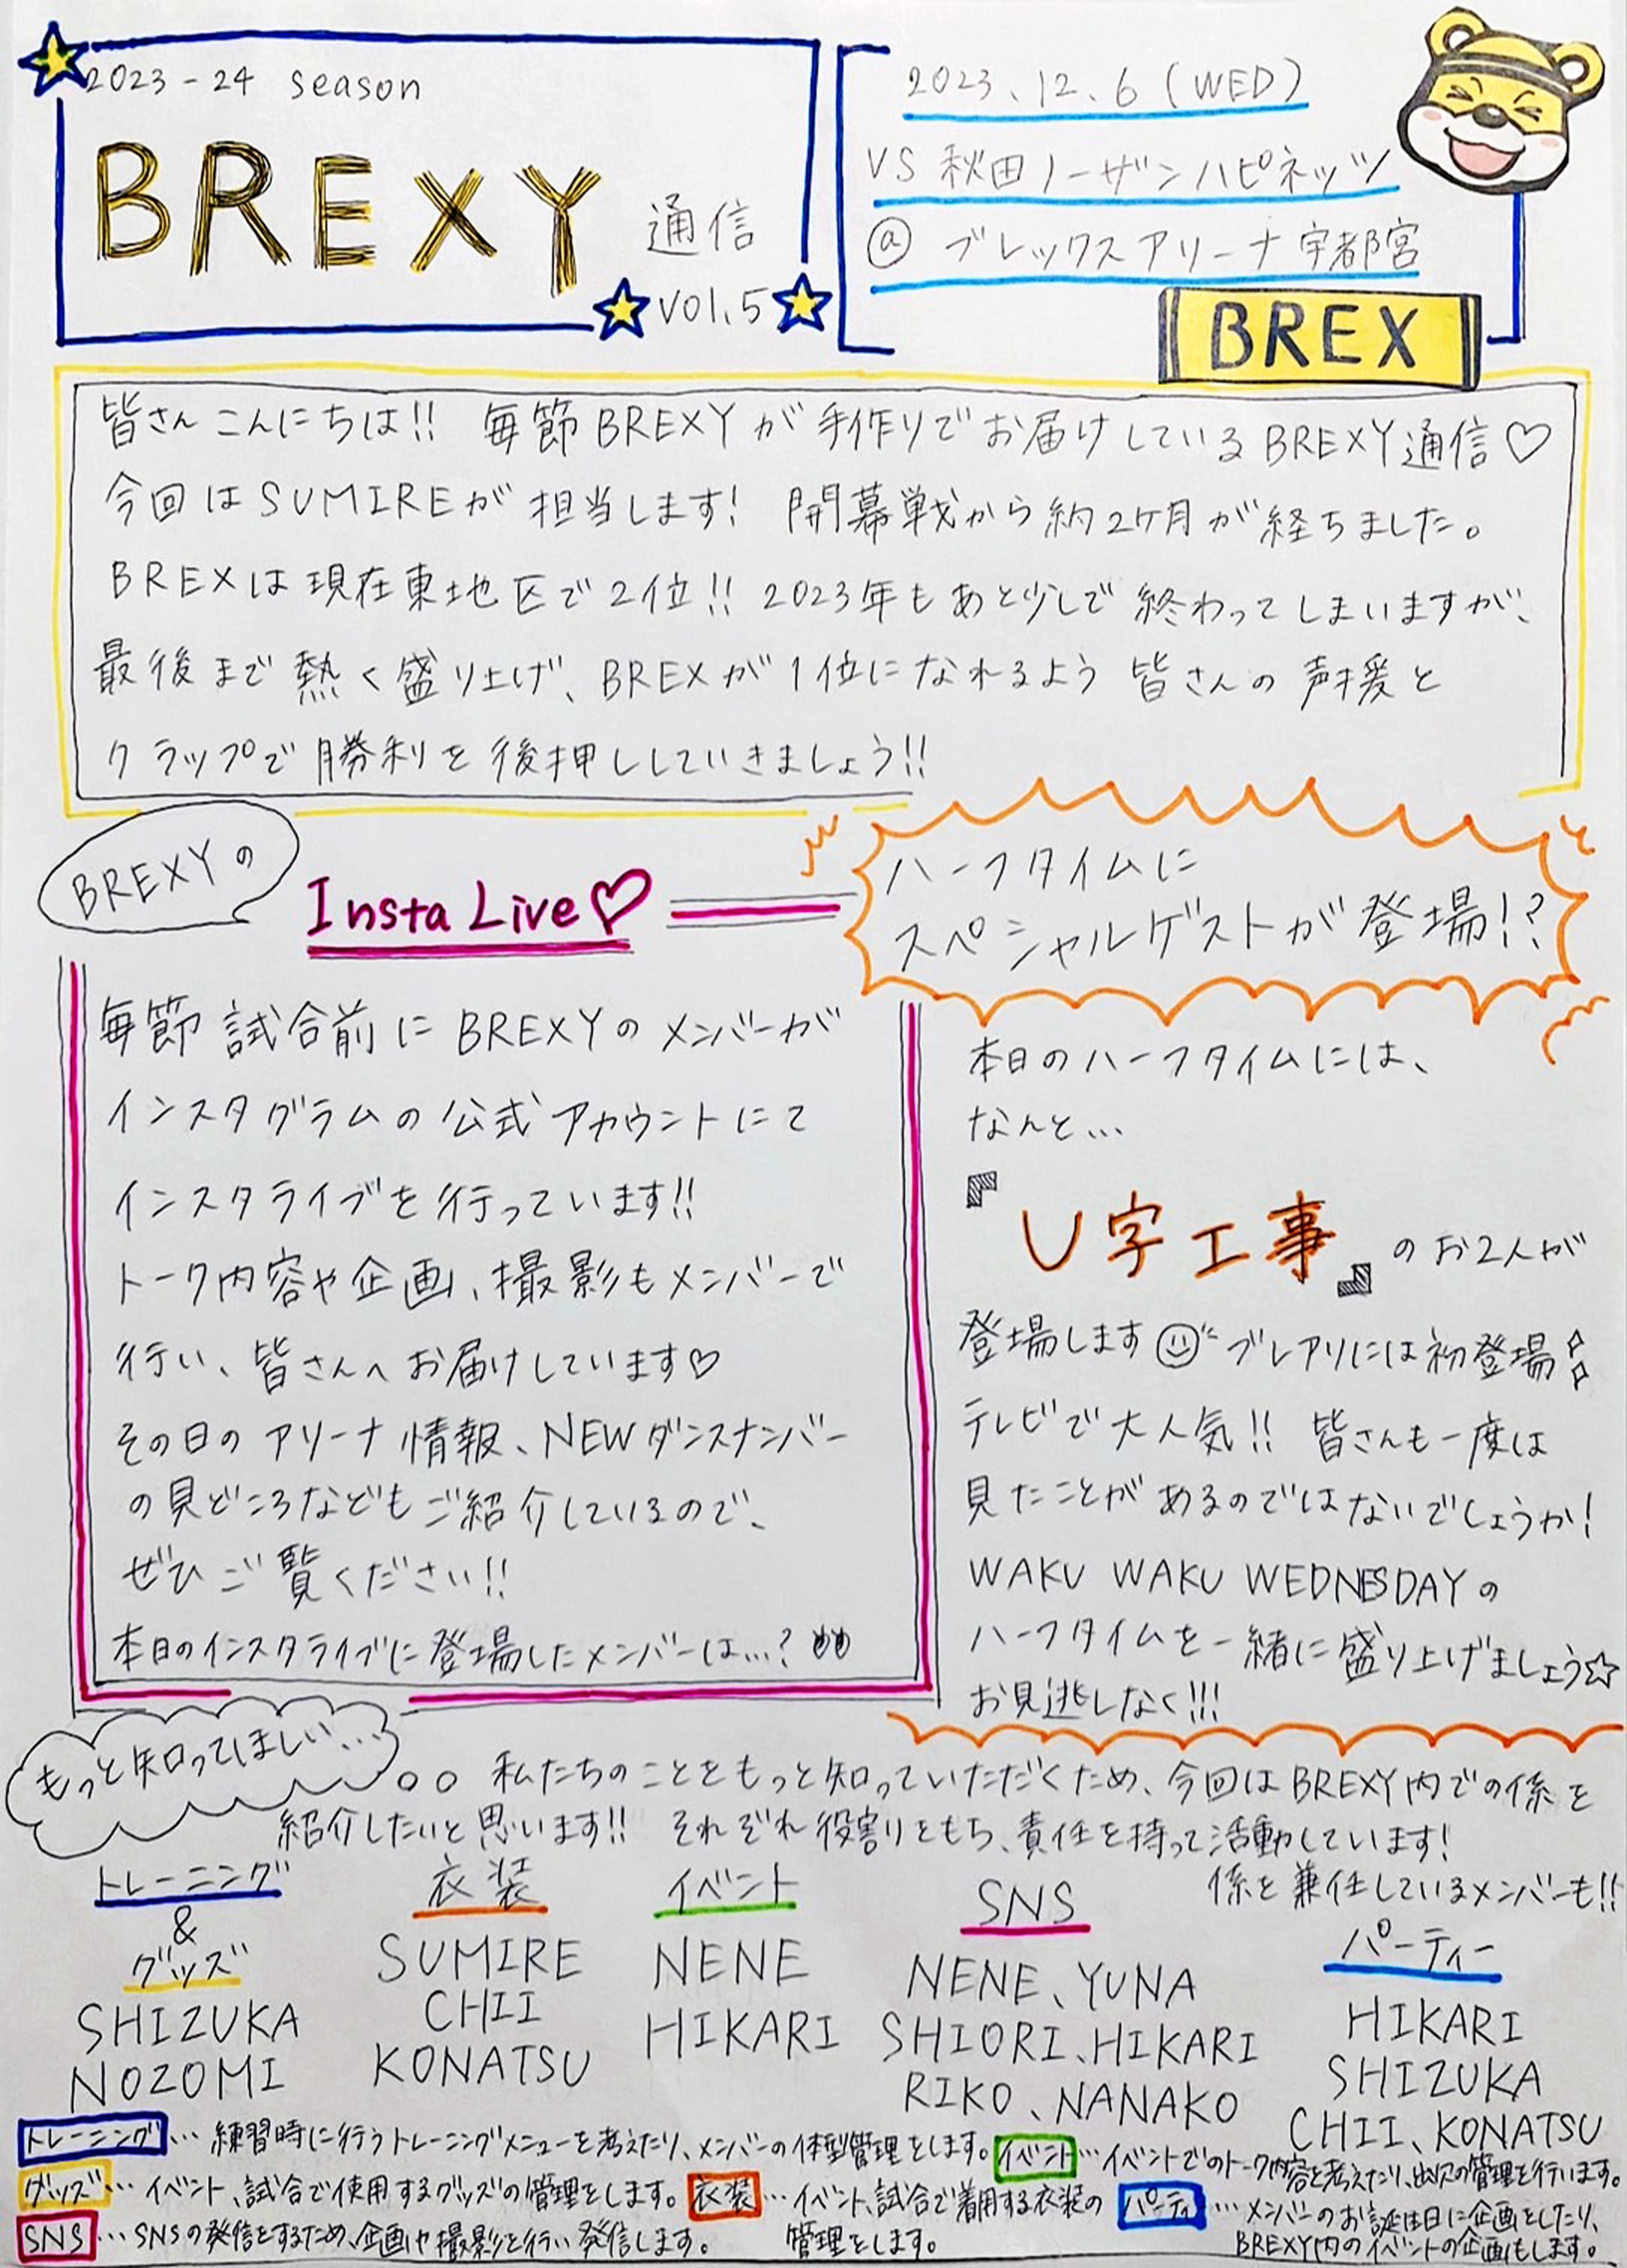 2023-24 season
BREXY通信
vol.5
2023.12.6(WED)
VS 秋田ノーザンハピネッツ
@ ブレックスアリーナ宇都宮
BREX
皆さんこんにちは!! 毎節BREXYが手作りでお届けしているBREXY通信♡
今回はSUMIREが担当します! 開幕戦から約2ヶ月が経ちました。
BREXは現在東地区で2位!! 2023年もあと少しで終わってしまいますが、
最後まで熱く盛り上げ、BREXが1位になれるよう皆さんの声援と
クラップで勝利を後押ししていきましょう!!
BREXYの
Insta Live♡
毎節試合前にBREXYのメンバーが
インスタグラムの公式アカウントにて
インスタライブを行っています!!
トーク内容や企画、撮影もメンバーで
行い、皆さんへお届けしています♡
その日のアリーナ情報、NEWダンスナンバー
の見どころなどもご紹介しているので、
ぜひご覧ください!!
本日のインスタライブに登場したメンバーは…?
ハーフタイムに
スペシャルゲストが登場!?
本日のハーフタイムには、
なんと…
『U字工事』のお2人が
登場します☺ ブレアリには初登場
テレビで大人気!! 皆さんも一度は
見たことがあるのではないでしょうか!
WAKU WAKU WEDNESDAYの
ハーフタイムを一緒に盛り上げましょう☆
お見逃しなく!!!
もっと知ってほしい…
私たちのことをもっと知っていただくため、今回はBREXY内での係を
紹介したいと思います!! それぞれ役割りをもち、責任を持って活動しています!
係を兼任しているメンバーも!!
トレーニング
&
グッズ
SHIZUKA
NOZOMI
衣装
SUMIRE
CHII
KONATSU
イベント
NENE
HIKARI
SNS
NENE、YUNA
SHIORI、HIKARI
RIKO、NANAKO
パーティー
HIKARI
SHIZUKA
CHII、KONATSU
トレーニング… 練習時に行うトレーニングメニューを考えたり、メンバーの体型管理をします。
イベント…イベントでのトーク内容を考えたり、出欠の管理を行います。
グッズ… イベント、試合で使用するグッズの管理をします。
衣装…イベント、試合で着用する衣装の
管理をします。
パーティ…メンバーのお誕生日に企画をしたり、
BREXY内のイベントの企画もします。
SNS… SNSの発信をするため、企画や撮影を行い発信します。